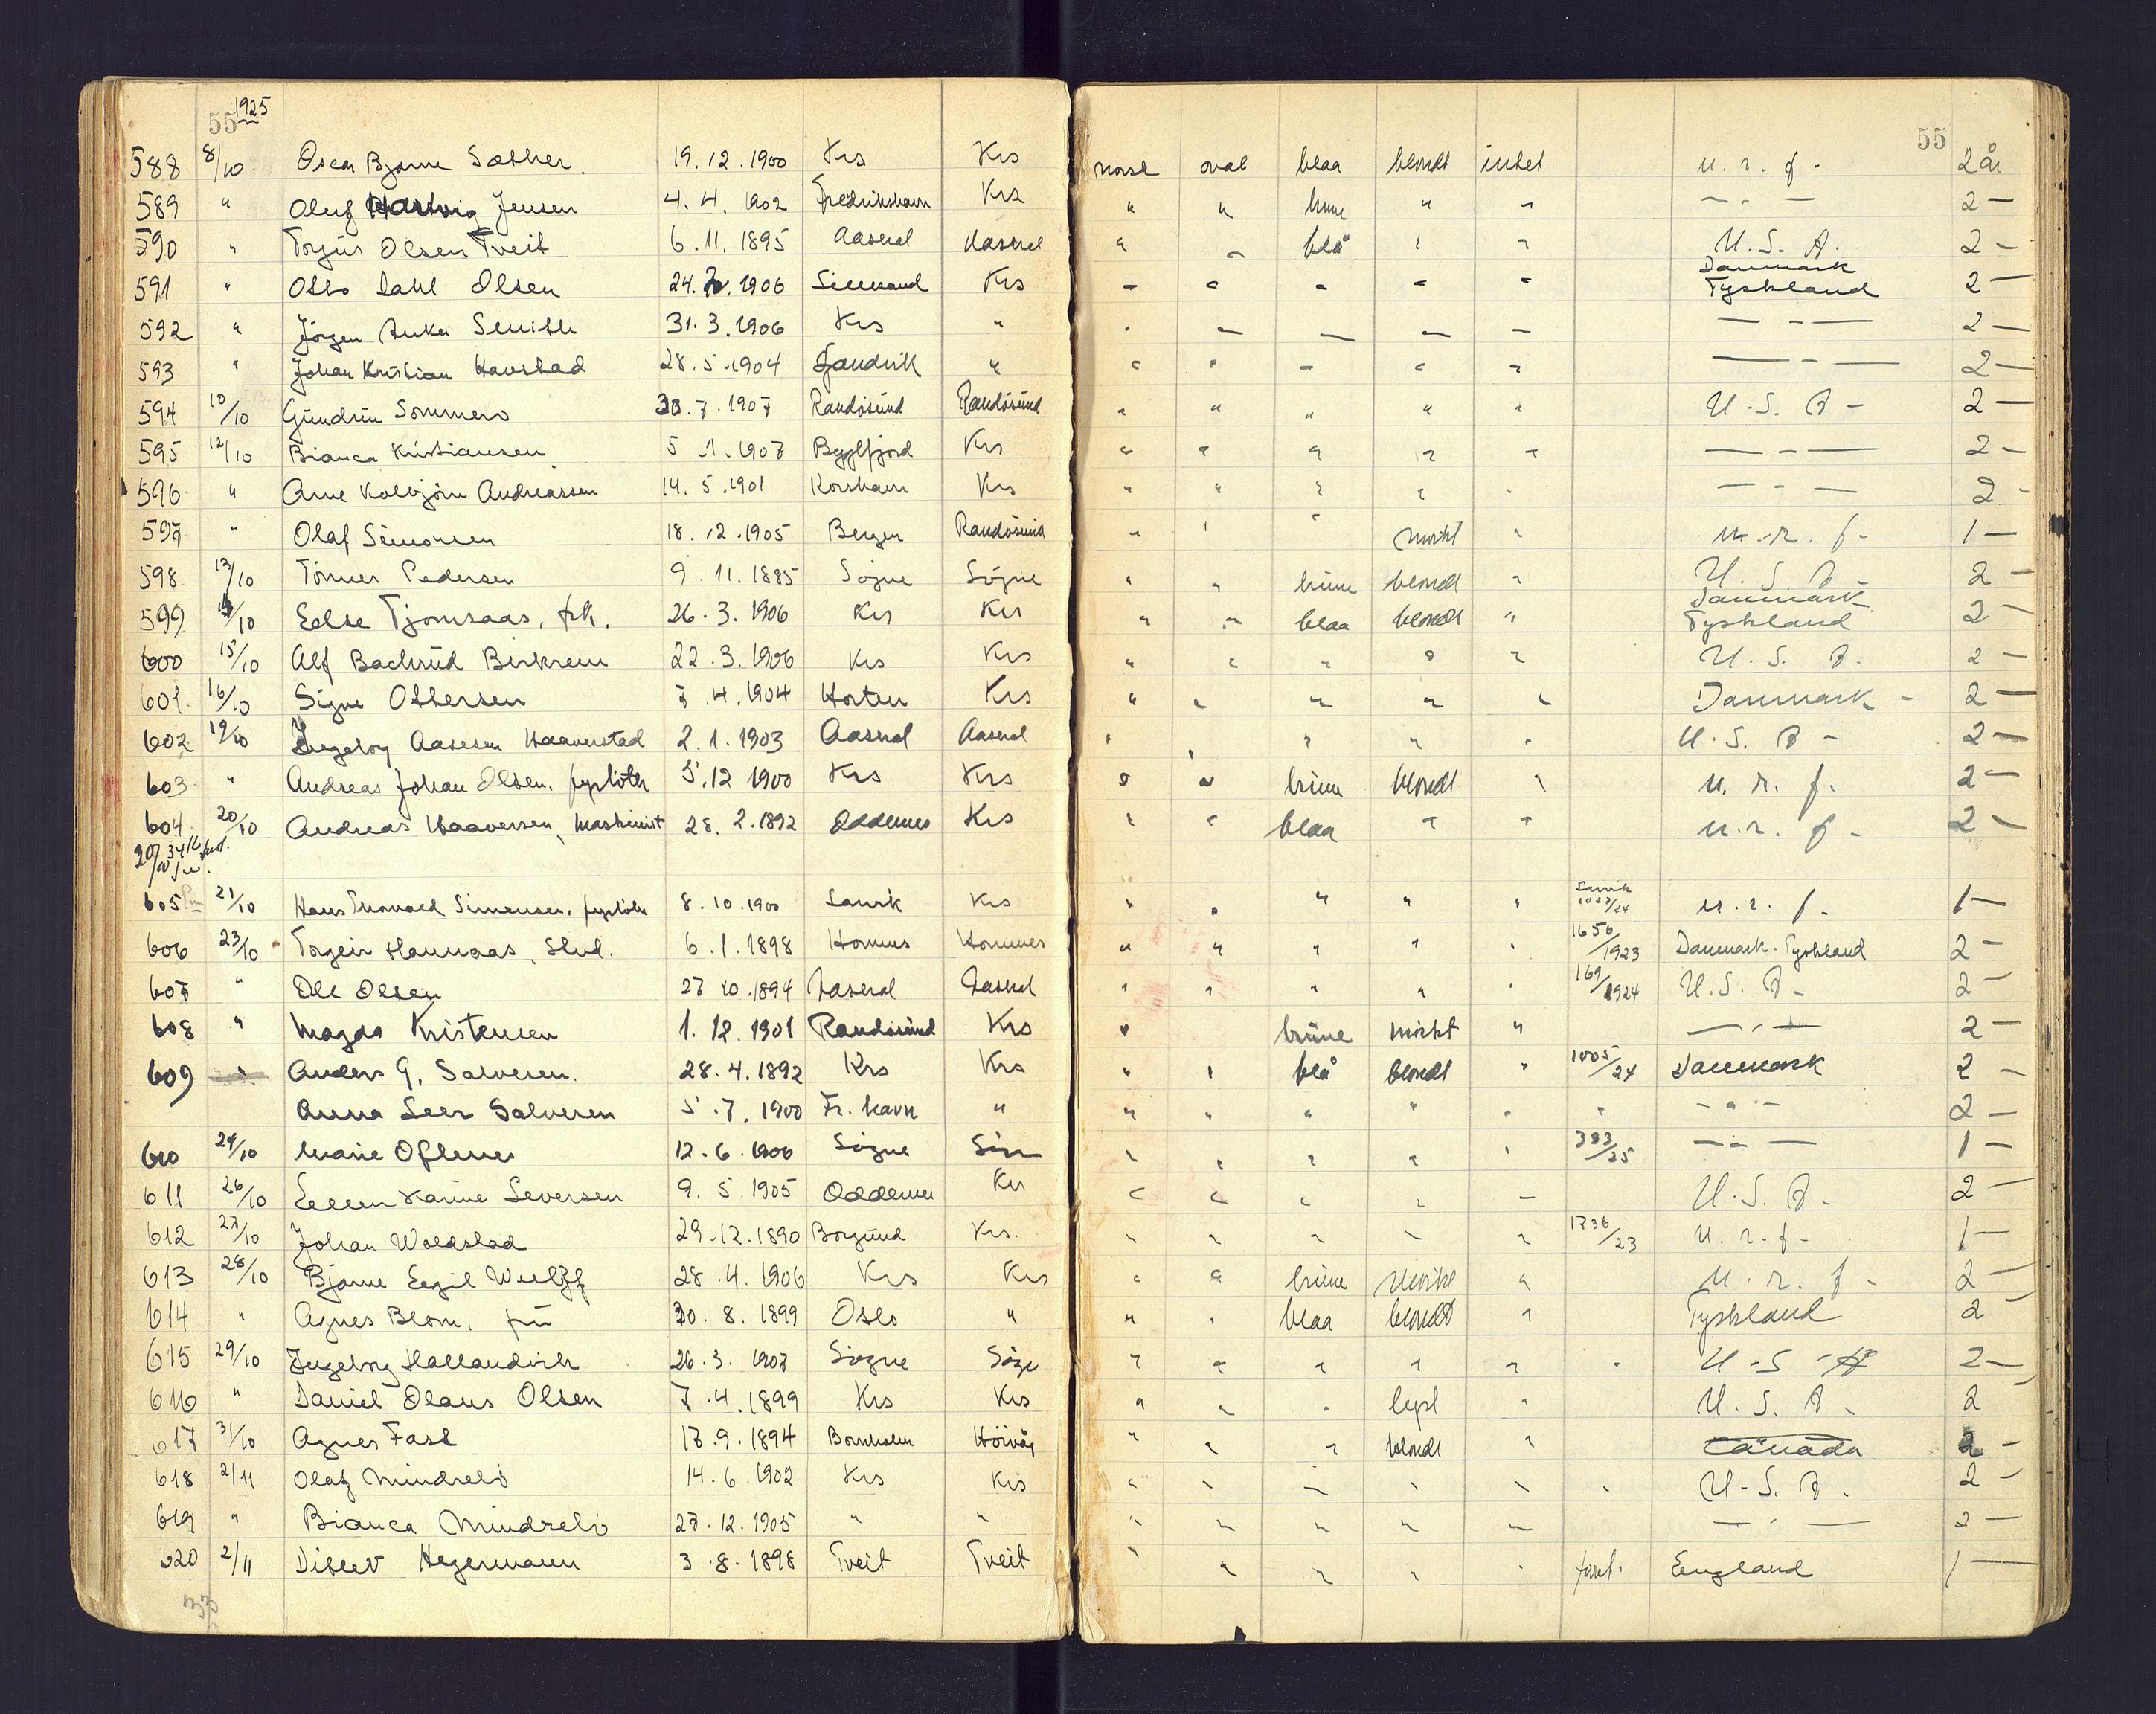 1925
55 55
588 8/10. Oscar Bjarne Sæther. 19.12.1900 Krs Krs norsk oval blaa blondt intet u. r. f. 2 år
589 " Oluf Hartvig Jensen 4. 4. 1902 Fredrikshavn Krs " " brune " " — " — 2 —
590 " Torjus Olsen Tveit 6.11.1895 Aaseral Aaseral " " blå " " U.S.A. 2 —
591 " Otto Dahl Olsen 24. 1906 Krs " " " " " Danmark Tyskland 2 —
592 " Jörgen Anker Smith 31.3.1906 Krs " " " " " " — " — 2 —
593 " Johan Kristian Haustad 28.5.1904 " " " " " " — " — 2 —
594 10/10 Gundrun Sommero 30.7.1907 Randösund Randösund " " " " " U.S.A. 2 —
595 12/10 Bianca Kristiansen 5.1.1907 Krs " " " " " — " — 2 —
596 " Arne Kolbjörn Andreassen 14.5.1901 Korshavn Krs " " " " " — " — 2 -
597 " Olaf Simonsen 18.12.1905 Bergen Randösund " " " mörkt " u. r. f. 1 —
598 13/10 Tönnes Pedersen 9.11.1885 Sögne Sögne " " brune blondt " U.S.A. 2 —
599 /10 Else Tjomsaas, frk. 26.3.1906 Krs Krs " " blaa blondt " Danmark Tyskland 2 —
600 15/10 Alf Birkrem 22.3.1906 Krs Krs " " " " " U.S.A. 2 —
601 16/10 Signe Ottersen 7.4.1904 Horten Krs " " " " " Danmark - 2 —
602 19/10 Ingeborg Aasesen Haaverstad 2.1.1903 Aaseral Aaseral " " " " " U.S.A. 2 —
603 " Andreas Johan Olsen, fyrböter 5.12 1900 Krs Krs " " brune blondt " u. r. f. 2 —
604 20/10 Andreas Haaversen, Maskinist 28. 2.1892 Oddernes Krs " " blaa " " u. r. f. 2 —
605 21/10 Hans Thorvald Simensen, fyrböter 8.10.1900 Krs " " " " " u. r. f. 1 —
606 23/10 Torgeir Hannaas, Stud. 6.1.1898 Hornnes Hornnes " " " " " 1656/1923 Danmark. Tyskland 2 —
607 " Ole Olsen 27 10.1894 Aaseral Aaseral " " " " " 169/1924 U.S.A. 2 —
608 " Magda Kristensen 1. 12.1901 Randösund Krs " brune mörkt " — " — 2 —
609 " Anders G. Salvesen. 28.4.1892 Krs Krs " " blå blondt " 1005/24 Danmark 2 —
Anna Leer Salvesen 5.7.1900 Fr. havn " " " " " " " - " - 2 —
610 24/10 Marie Oftenes 12.6.1906 Sögne " " " " " 383/25 — " — 1 —
611 26/10 Ellen Karine Seversen 9.5.1905 Oddernes Krs " " " " " U.S.A. 2 —
612 27/10 Johan Woldstad 29.12.1890 Borgund Krs. " " " " " 1736/23 u. r. f. 1 —
613 28/10 Bjarne Eegil Wulff 28.4.1906 Krs Krs " " brune mörkt " u. r. f. 2 —
614 " Agnes Blom, fru 30. 8. 1899 Oslo " " " blaa blondt " Tyskland 2 —
615 29/10 Ingeborg Hallandvik 26.3.1907 Sögne " " " " " " U.S.A 2 —
616 " Daniel Olaus Olsen 7.4.1899 Krs Krs " " " lyst " U.S.A. 2 —
617 31/10 Agnes Fast 17.9.1894 Bornholm Hövåg " " " blondt " Canada 2 —
618 2/11 Olaf Mindrebö 14.6.1902 Krs Krs " " " " " " U.S.A. 2 —
619 " Bianca Mindrebö 27.12.1905 " " " " " " " — " — 2 —
620 2/11 Ditlev Hegermann 3.8.1898 Tveit Tveit " " " " " England 1 —